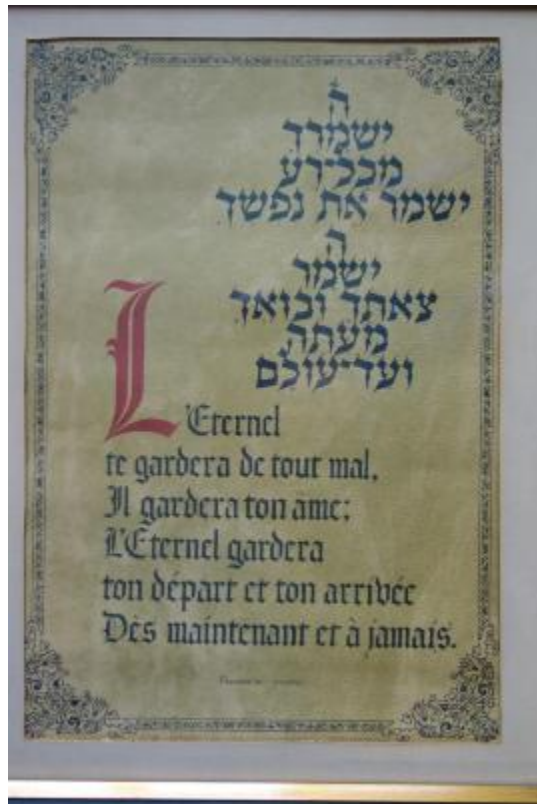 ה'
ישמרך
מכל־רע
ישמר את נפשך
ה'
ישמר
צאתך ובואך
מעתה
ועד־עולם
L'Eternel
te gardera de tout mal,
Il gardera ton âme;
L'Eternel gardera
ton départ et ton arrivée
Dès maintenant et à jamais.